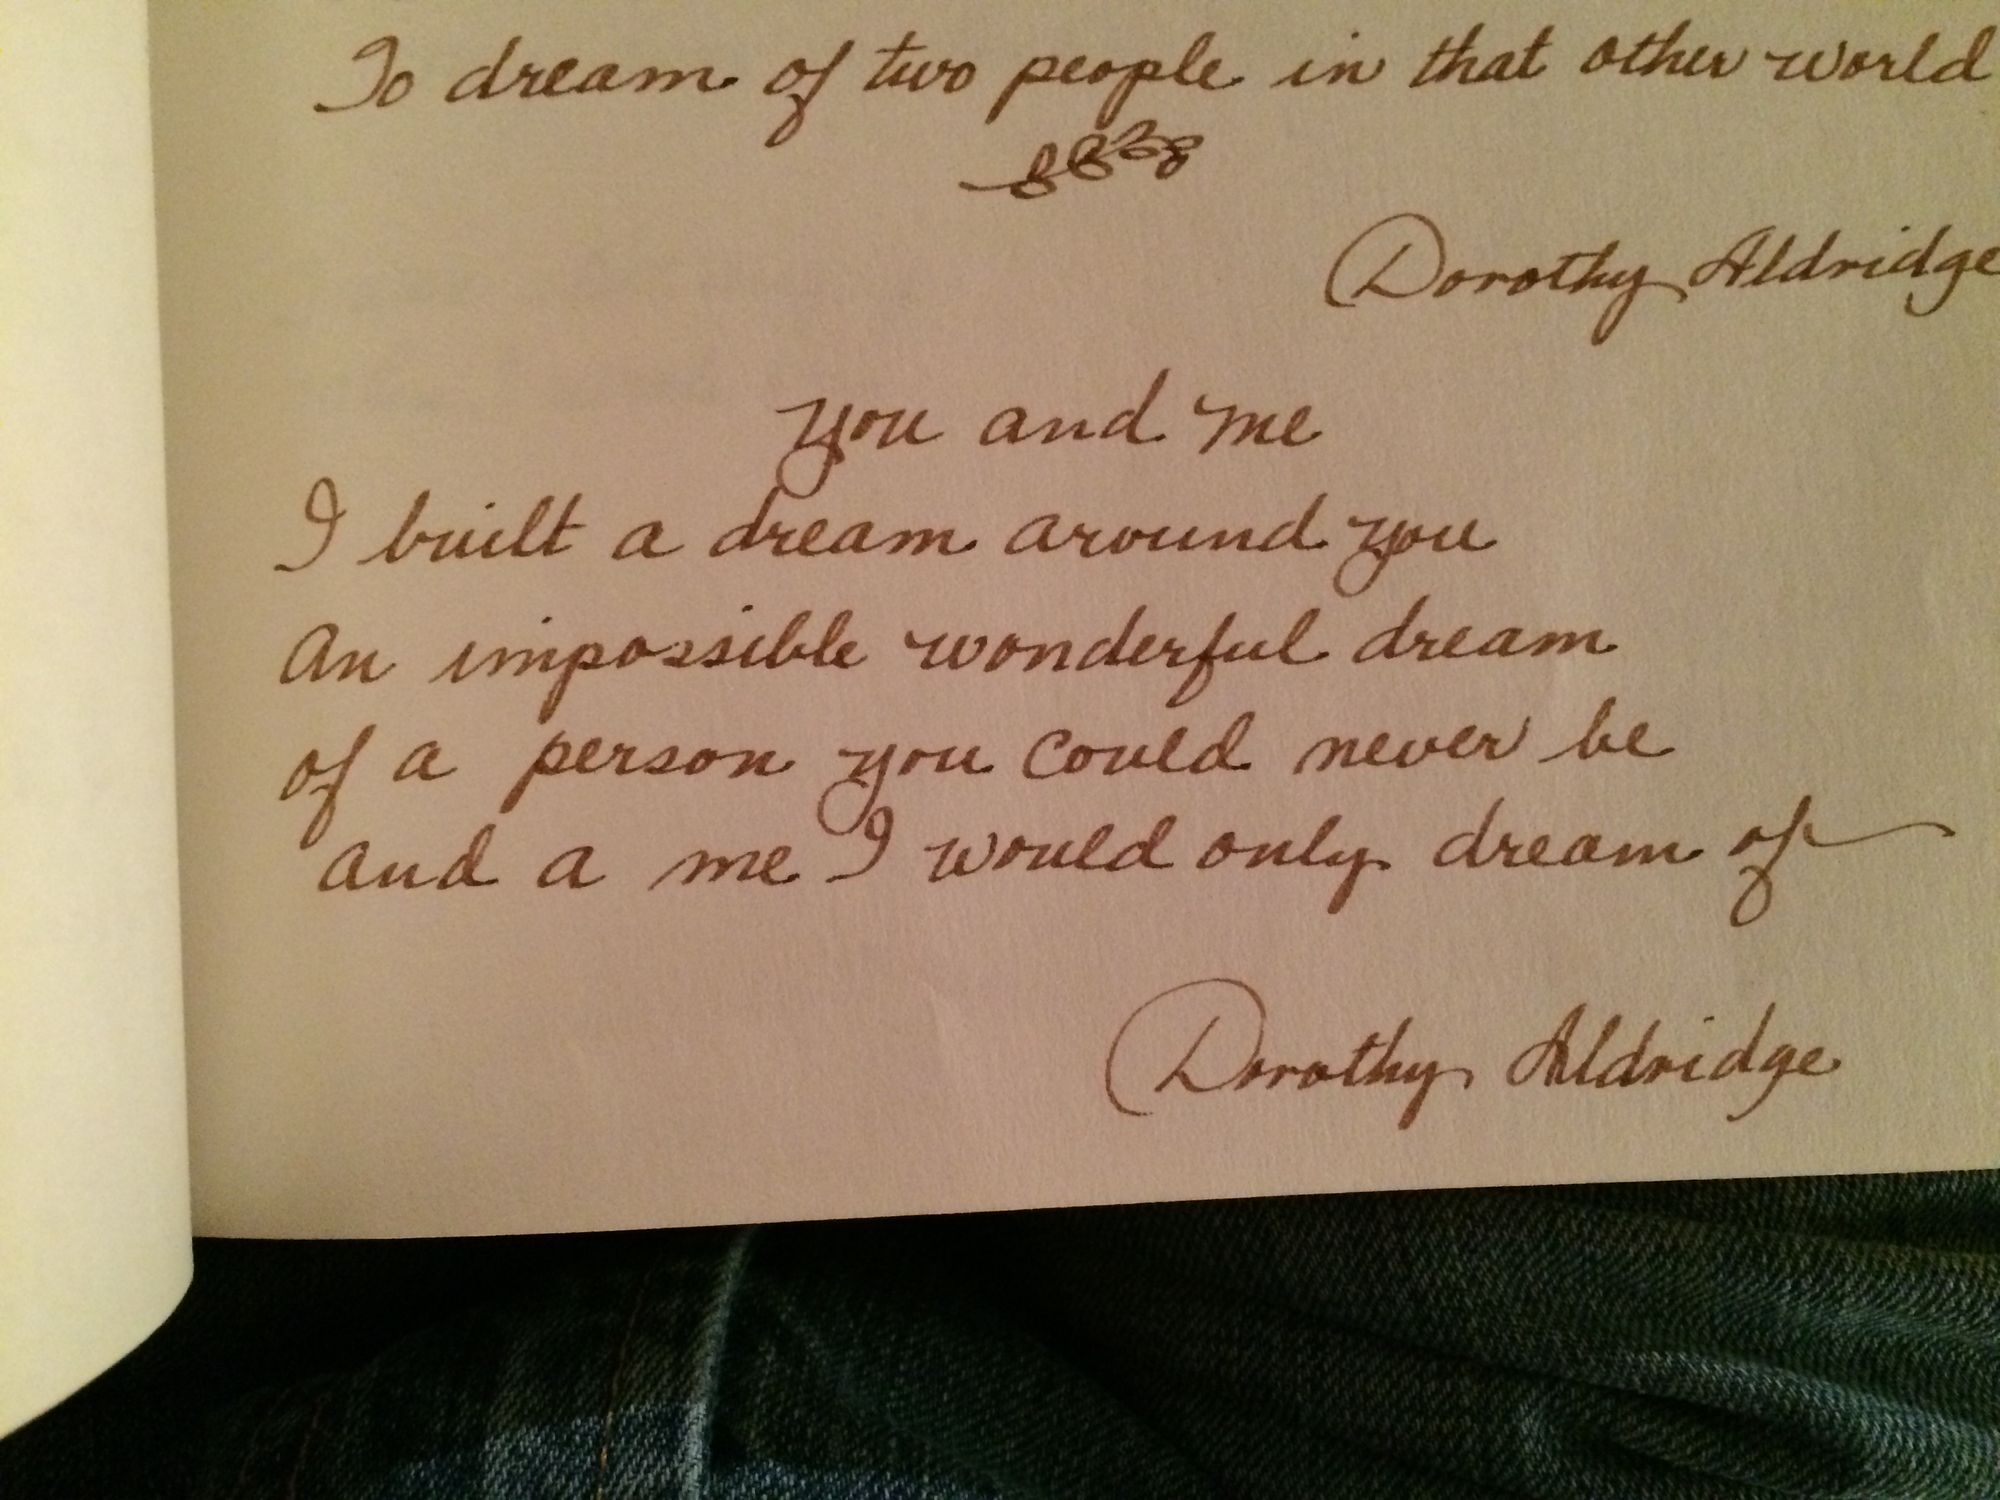 To dream of two people in that other world
Dorothy Aldridge
You and me
I built a dream around you
An impossible wonderful dream
of a person you could never be
and a me I would only dream of
Dorothy Aldridge